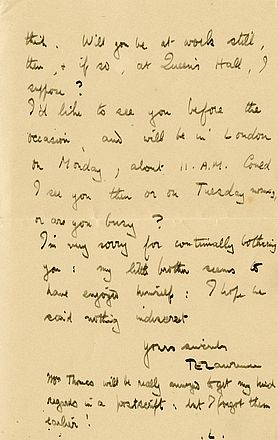 think. Will you be at work still,
then, & if so, at Queen's Hall, I
suppose?
I'd like to see you before the
occasion, and will be in London
on Monday, about 11. A.M. Could
I see you then or on Tuesday morning,
or are you busy?
I'm very sorry for continually bothering
you: my little brother seems to
have enjoyed himself: I hope he
said nothing indiscreet
Yours sincerely
TELawrence
Mrs Thomas will be really annoyed to get my kind
regards in a postscript: but I forgot them
earlier!
L.